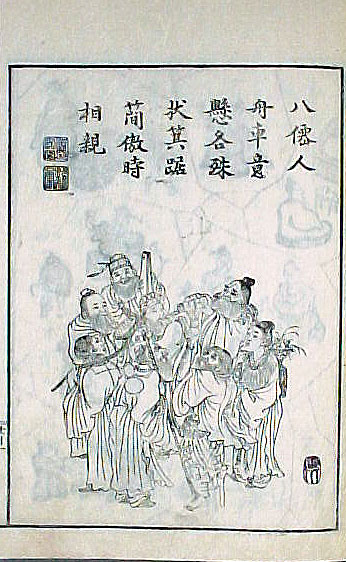 八僊人
舟車意
懸各殊
状箕踞
簡傲時
相親